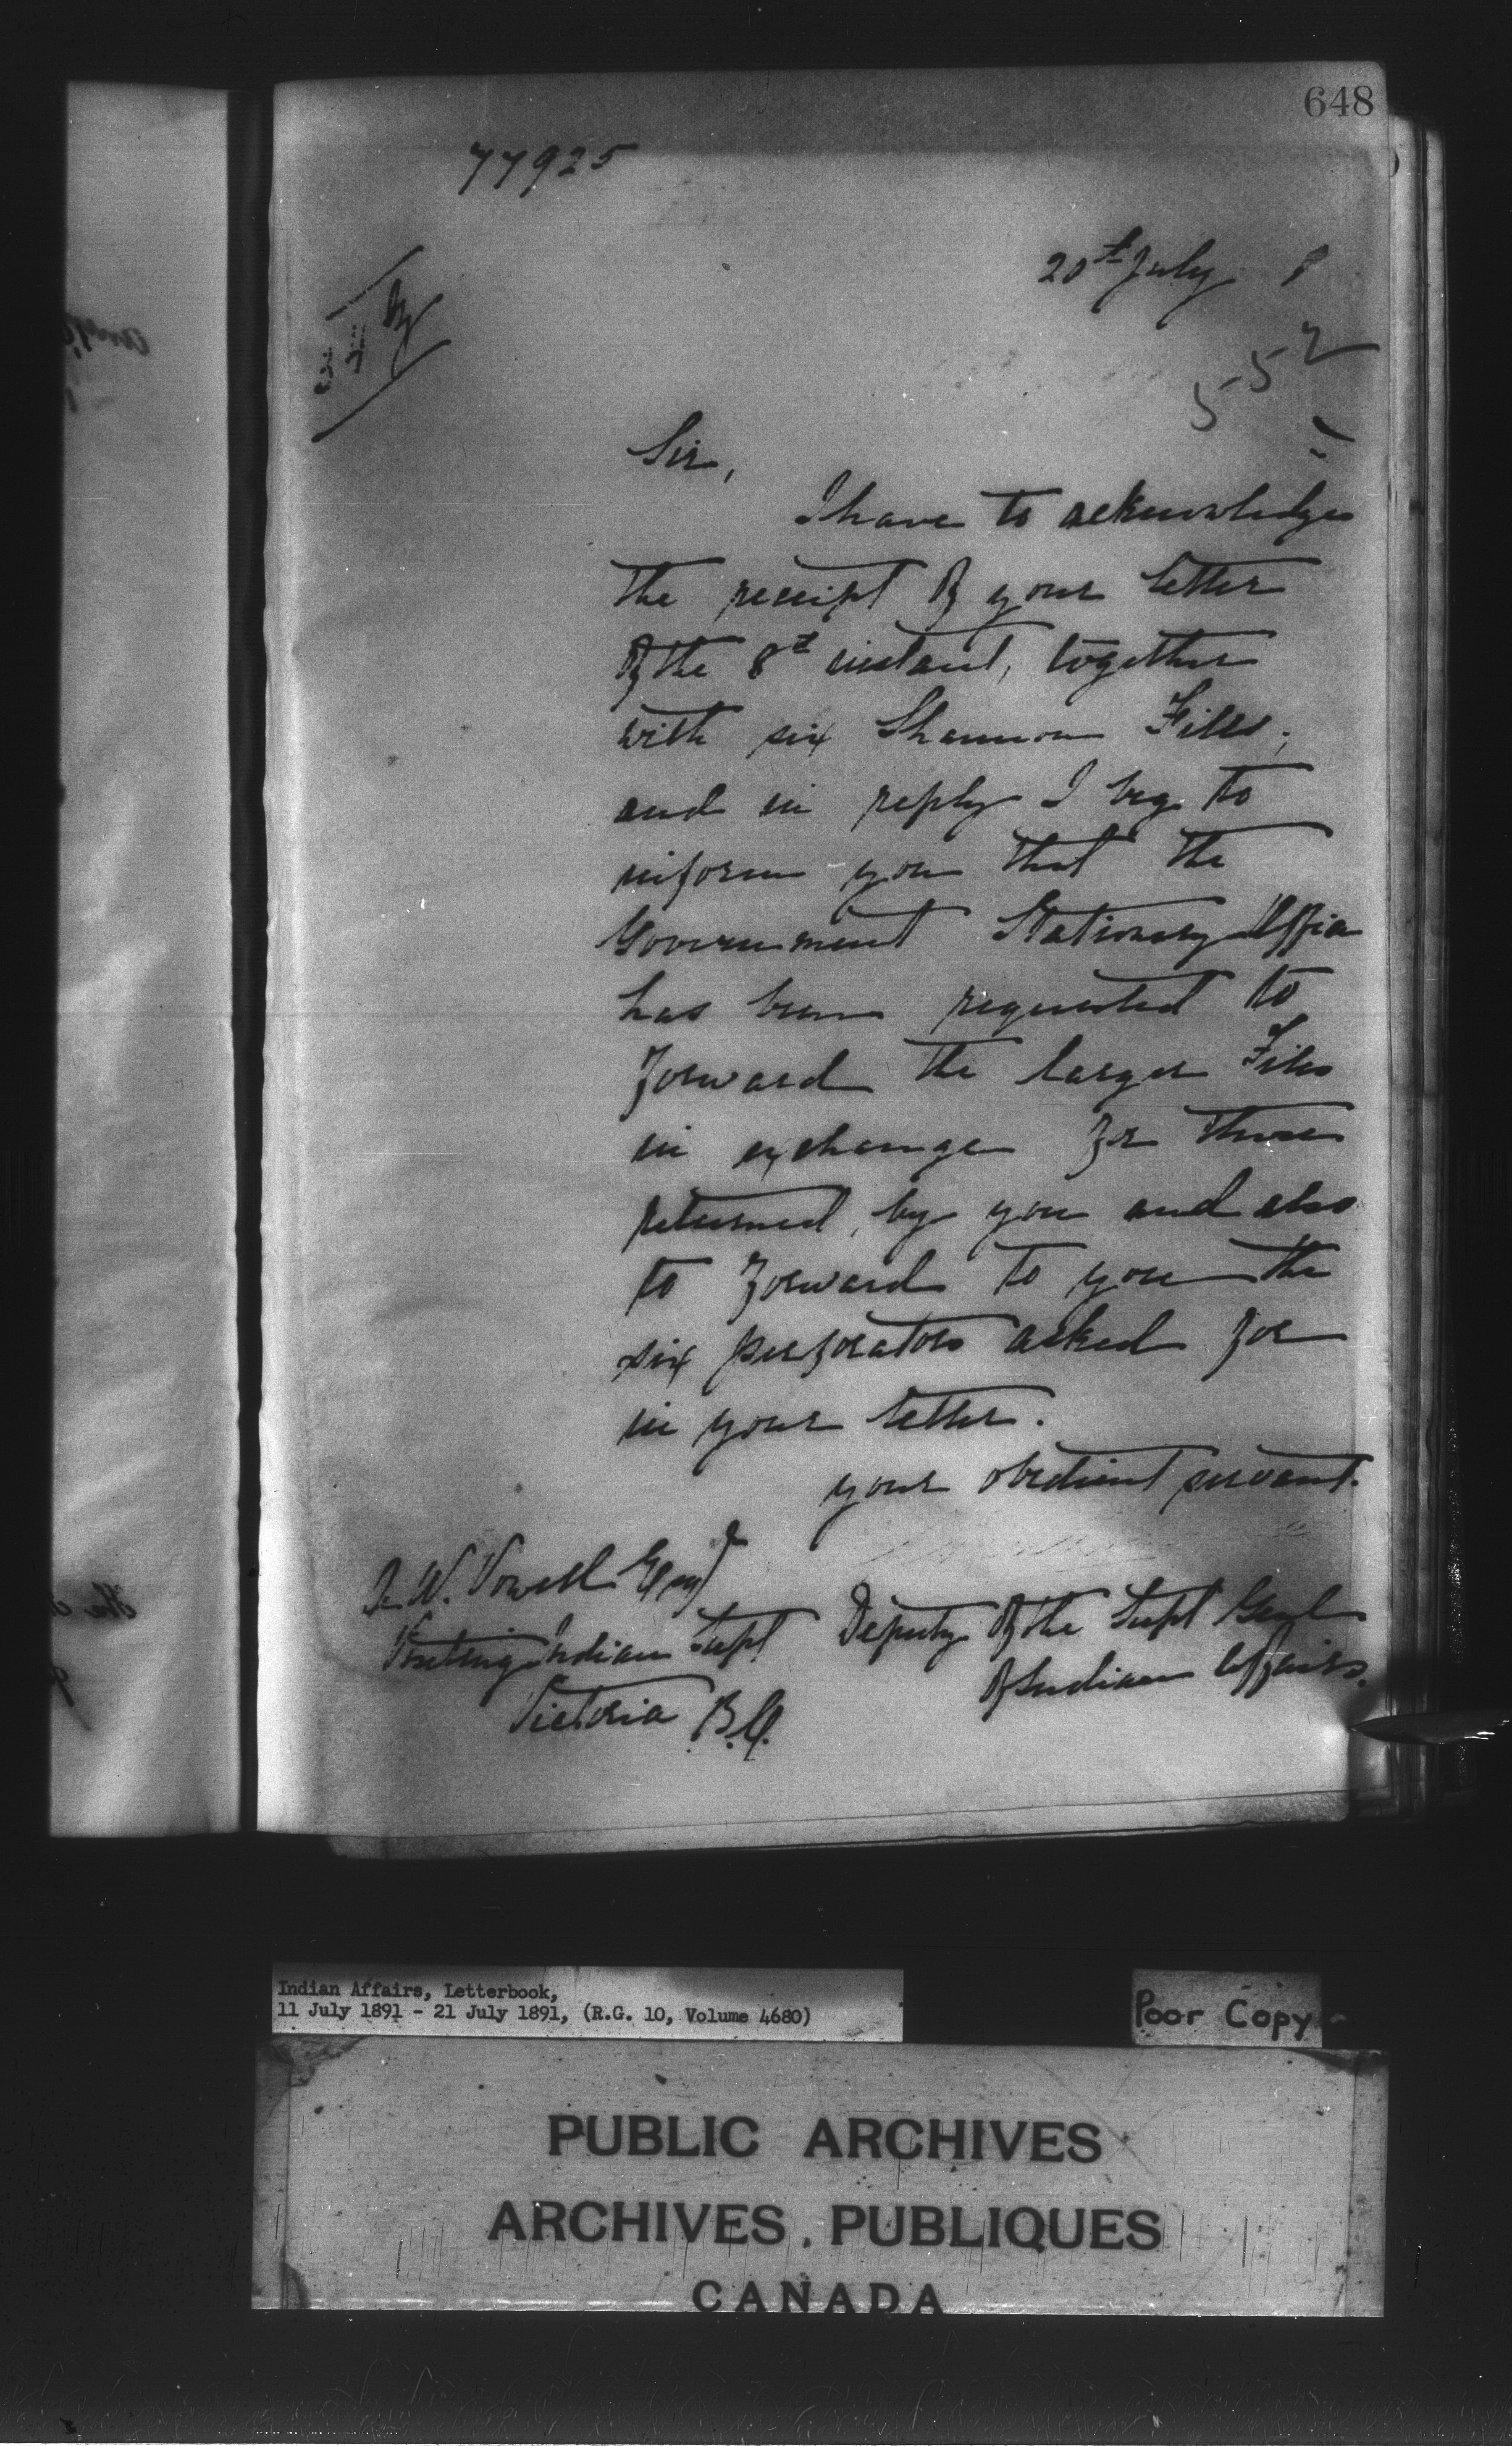 648
77925
20th July
552
Sir,
I have to acknowledge
the receipt of your letter
of the 8th instant, together
with six Shannon Files,
and in reply I beg to
inform you that the
Government Stationery Office
has been requested to
forward the larger Files
in exchange for those
returned, by you and also
to forward to you the
six perforators asked for
in your letter.
your obedient servant.
A. W. Vowell Esqr
Visiting Indian Supt
Victoria B.C.
Deputy of the Supt Genl
of Indian Affairs.
Indian Affairs, Letterbook,
11 July 1891 - 21 July 1891, (R.G. 10, Volume 4680)
Poor Copy
PUBLIC ARCHIVES
ARCHIVES PUBLIQUES
CANADA